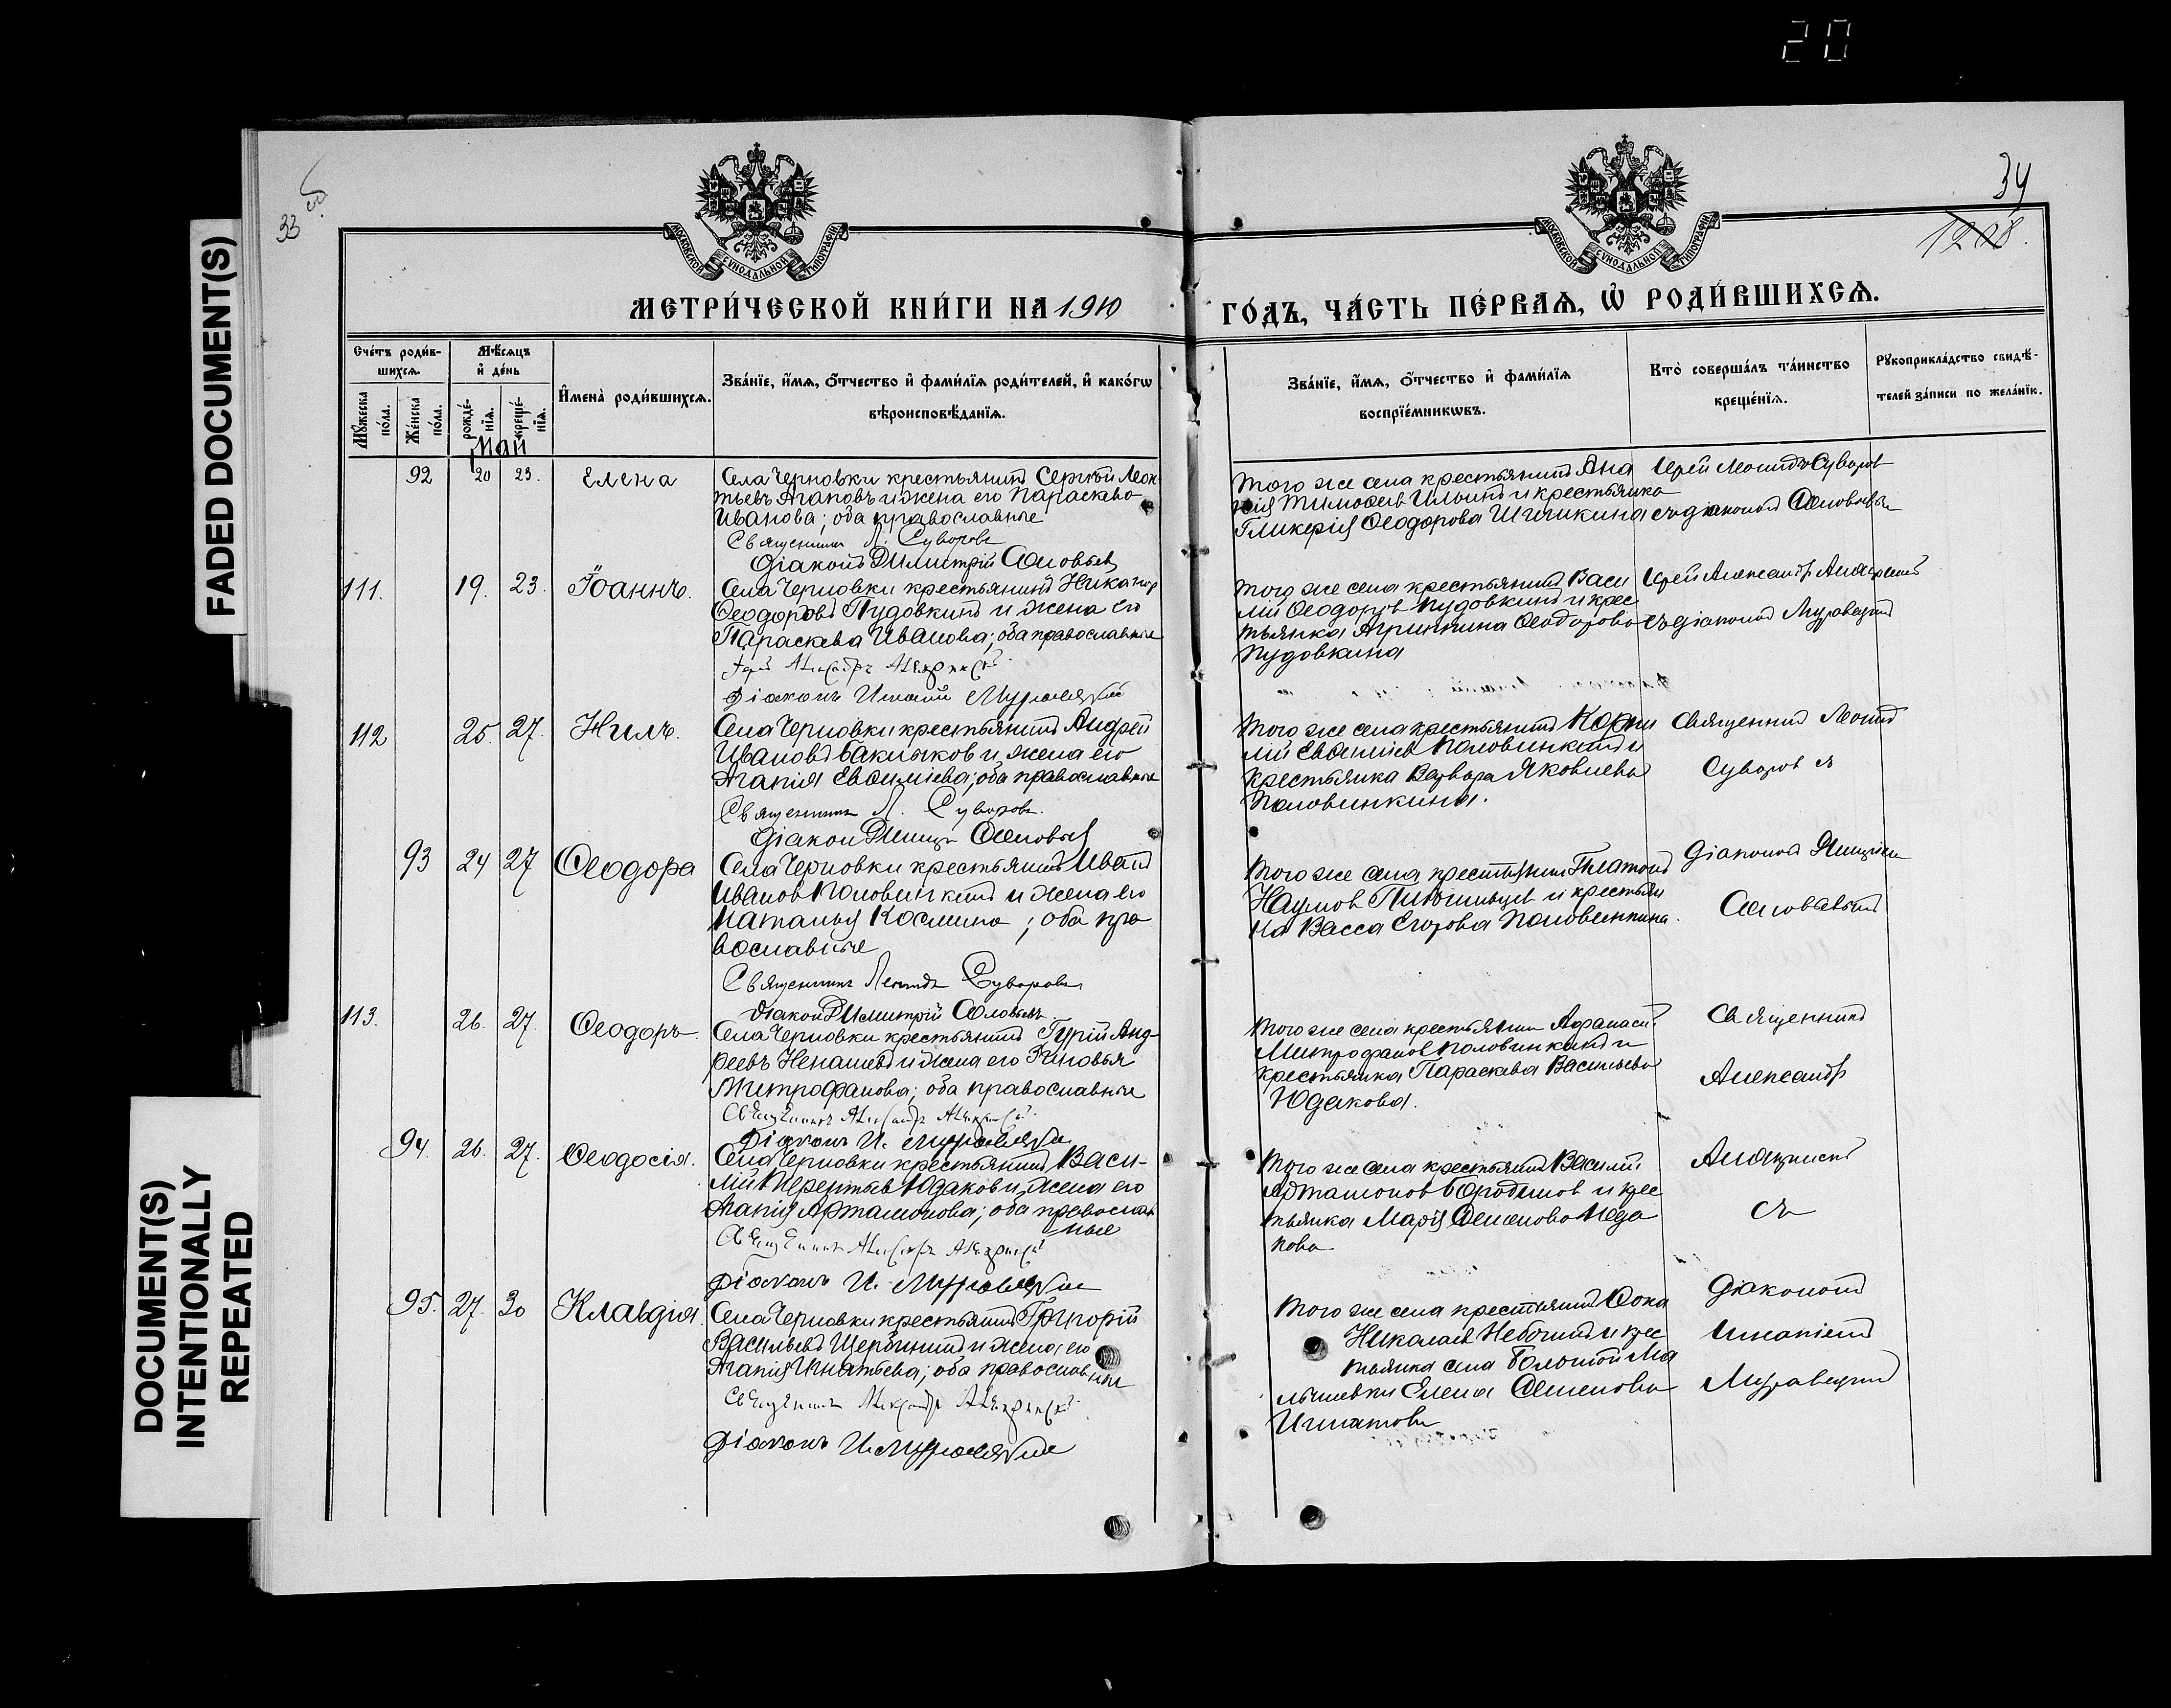 20
FADED DOCUMENT(S)
DOCUMENT(S)
INTENTIONALLY
REPEATED
33
34
1208.
МОСКОВСКОЙ СѴНОДАЛЬНОЙ ТИПОГРАФІИ
МОСКОВСКОЙ СѴНОДАЛЬНОЙ ТИПОГРАФІИ
МЕТРИ́ЧЕСКОЙ КНИ́ГИ НА 1910
ГО́ДЪ, ЧА́СТЬ ПЕ́РВАѦ, Ѡ҆ РОДИ́ВШИХСѦ.
Сче́тъ роди́в-
шихсѧ.
Мꙋ́жеска по́ла.
Же́нска по́ла.
Мѣ́сѧцъ
и҆ де́нь
рожде́-нїѧ.
креще́-нїѧ.
И҆мена̀ роди́вшихсѧ.
Зва́нїе, и҆́мѧ, ѻ҆́тчество и҆ фами́лїѧ роди́телей, и҆ како́гѡ
вѣроисповѣ́данїѧ.
Зва́нїе, и҆́мѧ, ѻ҆́тчество и҆ фами́лїѧ
воспрїе́мникѡвъ.
Кто̀ соверша́лъ та́инство
креще́нїѧ.
Рꙋкоприкла́дство свидѣ́-
телей за́писи по жела́нїю.
Май
92 20 23. Елена
Села Черновки крестьянинъ Сергѣй Леон
тьевъ Агаповъ и жена его Параскева
Иванова; оба православные
Священникъ Л. Суворовъ
Діаконъ Димитрій Соловьевъ
того же села крестьянинъ Ана
нія Тимоѳеевъ Ильинъ и крестьянка
Гликерія Ѳеодорова Шишкина
Іерей Леонидъ Суворовъ
съ діакономъ Соловьевымъ
111. 19. 23. Іоаннъ.
Села Черновки крестьянинъ Никаноръ
Ѳеодоровъ Пудовкинъ и жена его
Параскева Иванова; оба православные
Діаконъ Игнатій Муравецкій
того же села крестьянинъ Васи
лій Ѳеодоровъ Пудовкинъ и крес
тьянка Агриппина Ѳеодорова
Пудовкина
Іерей Александръ
съ діакономъ Муравецкимъ
112 25. 27. Нилъ.
Села Черновки крестьянинъ Андрей
Ивановъ Баклыковъ и жена его
Агапія Евѳиміева; оба православные
Священникъ Л. Суворовъ.
Діаконъ Димитр Соловьевъ
того же села крестьянинъ Корни
лій Евѳиміевъ Половинкинъ и
крестьянка Варвара Яковлева
Половинкина.
Священникъ Леонидъ
Суворовъ съ
93 24 27 Ѳеодора
Села Черновки крестьянинъ Иванъ
Ивановъ Половинкинъ и жена его
Наталья Космина; оба пра
вославные
Священникъ Леонидъ Суворовъ
Діаконъ Димитрій Соловьевъ
того же села крестьянинъ Платонъ
Наумовъ и крестьян
ка Васса Егорова Половинкина.
Діакономъ Димитріемъ
Соловьевымъ
113. 26. 27. Ѳеодоръ
Села Черновки крестьянинъ Гурій Анд-
реевъ Ненашевъ и жена его Зиновья
Митрофанова; оба православные
Діаконъ И. Муравецкій
того же села крестьянинъ Аѳанасій
Митрофановъ Половинкинъ и
крестьянка Параскева Васильева
Юдакова.
Священникъ
Александръ
94. 26. 27. Ѳеодосія.
Села Черновки крестьянинъ Васи-
лій Терентьевъ Юдаковъ и жена его
Агапія Артамонова; оба православ
ные
Діаконъ И. Муравецкій
того же села крестьянинъ Василій
Артамоновъ Бородиновъ и крес
тьянка Марія Семенова
кова
съ
95. 27. 30 Клавдія.
Села Черновки крестьянинъ Григорій
Васильевъ Щербининъ и жена его
Агапія Игнатьева; оба православные
Діаконъ И. Муравецкій
того же села крестьянинъ Ѳома
Николаевъ и крес
тьянка села Большой Ма
лышевки Елена Семенова
Игнатова
Діакономъ
Игнатіемъ
Муравецкимъ